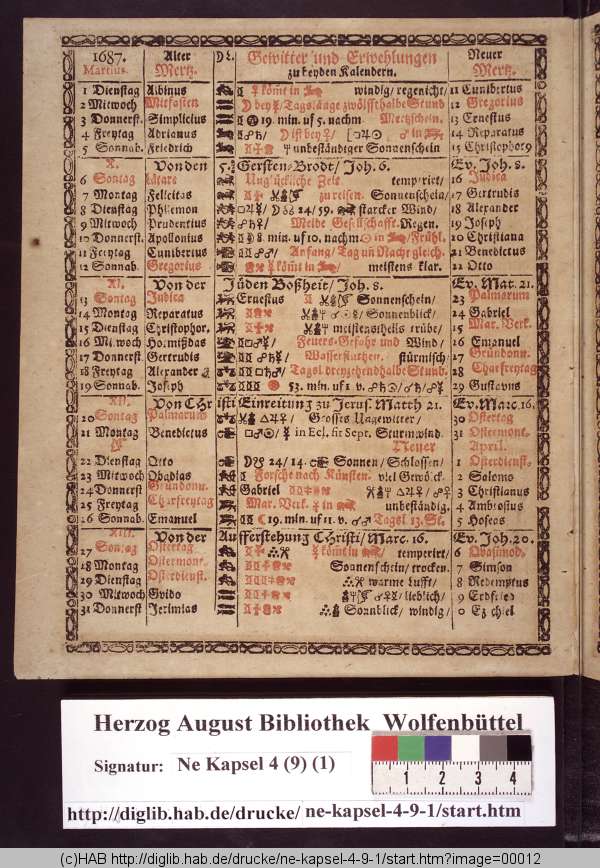 1687. Alter D Z. Gewitter und Erwehlungen Neuer
Martius. Mertz. zu beyden Kalendern. Mertz.
1 Dienstag Albinus ☿ kömt in windig/ regenicht/ 11 Cunibertus
2 Mitwoch Mitfasten D bey ☿/ Tagslänge zwölffthalbe Stund 12 Gregorius
3 Donnerst. Simplicius 19. min. uf 5. nachm Mertzschein. 13 Ernestus
4 Freytag Adrianus D ist bey ☿/ [□♃♂] ♂ in 14 Reparatus
5 Sonnab. Friedrich unbeständiger Sonnenschein 15 Christophor9
X. Von den 5. Gersten-Brodt/ Joh. 6. Ev. Joh. 8.
6 Sontag Lätare Unglückliche Zeit temperiet/ 16 Judica
7 Montag Felicitas zu reisen. Sonnenschein/ 17 Gertrudis
8 Dienstag Philemon 24/ 59. starcker Wind/ 18 Alexander
9 Mitwoch Prudentius Meide Gesellschafft. Regen. 19 Joseph
10 Donnerst. Apollonius 8. min. uf 10. nachm ☉ in Frühl. 20 Christiana
11 Freytag Cunibertus Anfang/ Tag uñ Nacht gleich. 21 Benedictus
12 Sonnab. Gregorius ☿ kömt in meistens klar. 22 Otto
XI. Von der Jüden Boßheit/ Joh. 8. Ev. Mat. 21.
13 Sontag Judica Ernestus Sonnenschein/ 23 Palmarum
14 Montag Reparatus Sonnenblick/ 24 Gabriel
15 Dienstag Christophor. meistentheils trübe/ 25 Mar. Verk.
16 Mitwoch Hormißdas Feuers-Gefahr und Wind/ 26 Emanuel
17 Donnerst. Gertrudis Wasserfluthen. stürmisch/ 27 Gründonn.
18 Freytag Alexander Tagsl. dreyzehendhalbe Stund. 28 Charfreytag
19 Sonnab. Joseph 53. min. uf 1. v. 29 Gustavus
XII. Von CHristi Einreitung zu Jerus. Matth 21. Ev. Marc. 16.
20 Sontag Palmarum Grosses Ungewitter/ 30 Ostertag
21 Montag Benedictus ☿ in Ecl. fit Sept. Sturmwind. 31 Ostermont.
Neuer April.
22 Dienstag Otto 24/ 14. Sonnen/ Schlossen/ 1 Osterdienst.
23 Mitwoch Obadias Forsche nach Künsten. viel Gewölck. 2 Salome
24 Donnerst Gründonn. Gabriel 3 Christianus
25 Freytag Charfreytag Mar. Verk. ☿ in unbeständig. 4 Ambrosius
26 Sonnab. Emanuel 19. min. uf 11. v. Tagsl. 13. St. 5 Hoseas
XIII. Von der Aufferstehung CHristi/ Marc. 16. Ev. Joh. 20.
27 Sontag Ostertag ☿ kömt in temperiet/ 6 Quasimod.
28 Montag Ostermont. Sonnenschein/ trocken. 7 Simson
29 Dienstag Osterdienst. warme Lufft/ 8 Redemptus
30 Mitwoch Gvido lieblich/ 9 Erdfried
31 Donnerst Jeremias Sonnblick/ windig/ 0 Ezechiel
Herzog August Bibliothek Wolfenbüttel
Signatur: Ne Kapsel 4 (9) (1)
1 2 3 4
http://diglib.hab.de/drucke/ ne-kapsel-4-9-1/start.htm
(c)HAB http://diglib.hab.de/drucke/ne-kapsel-4-9-1/start.htm?image=00012